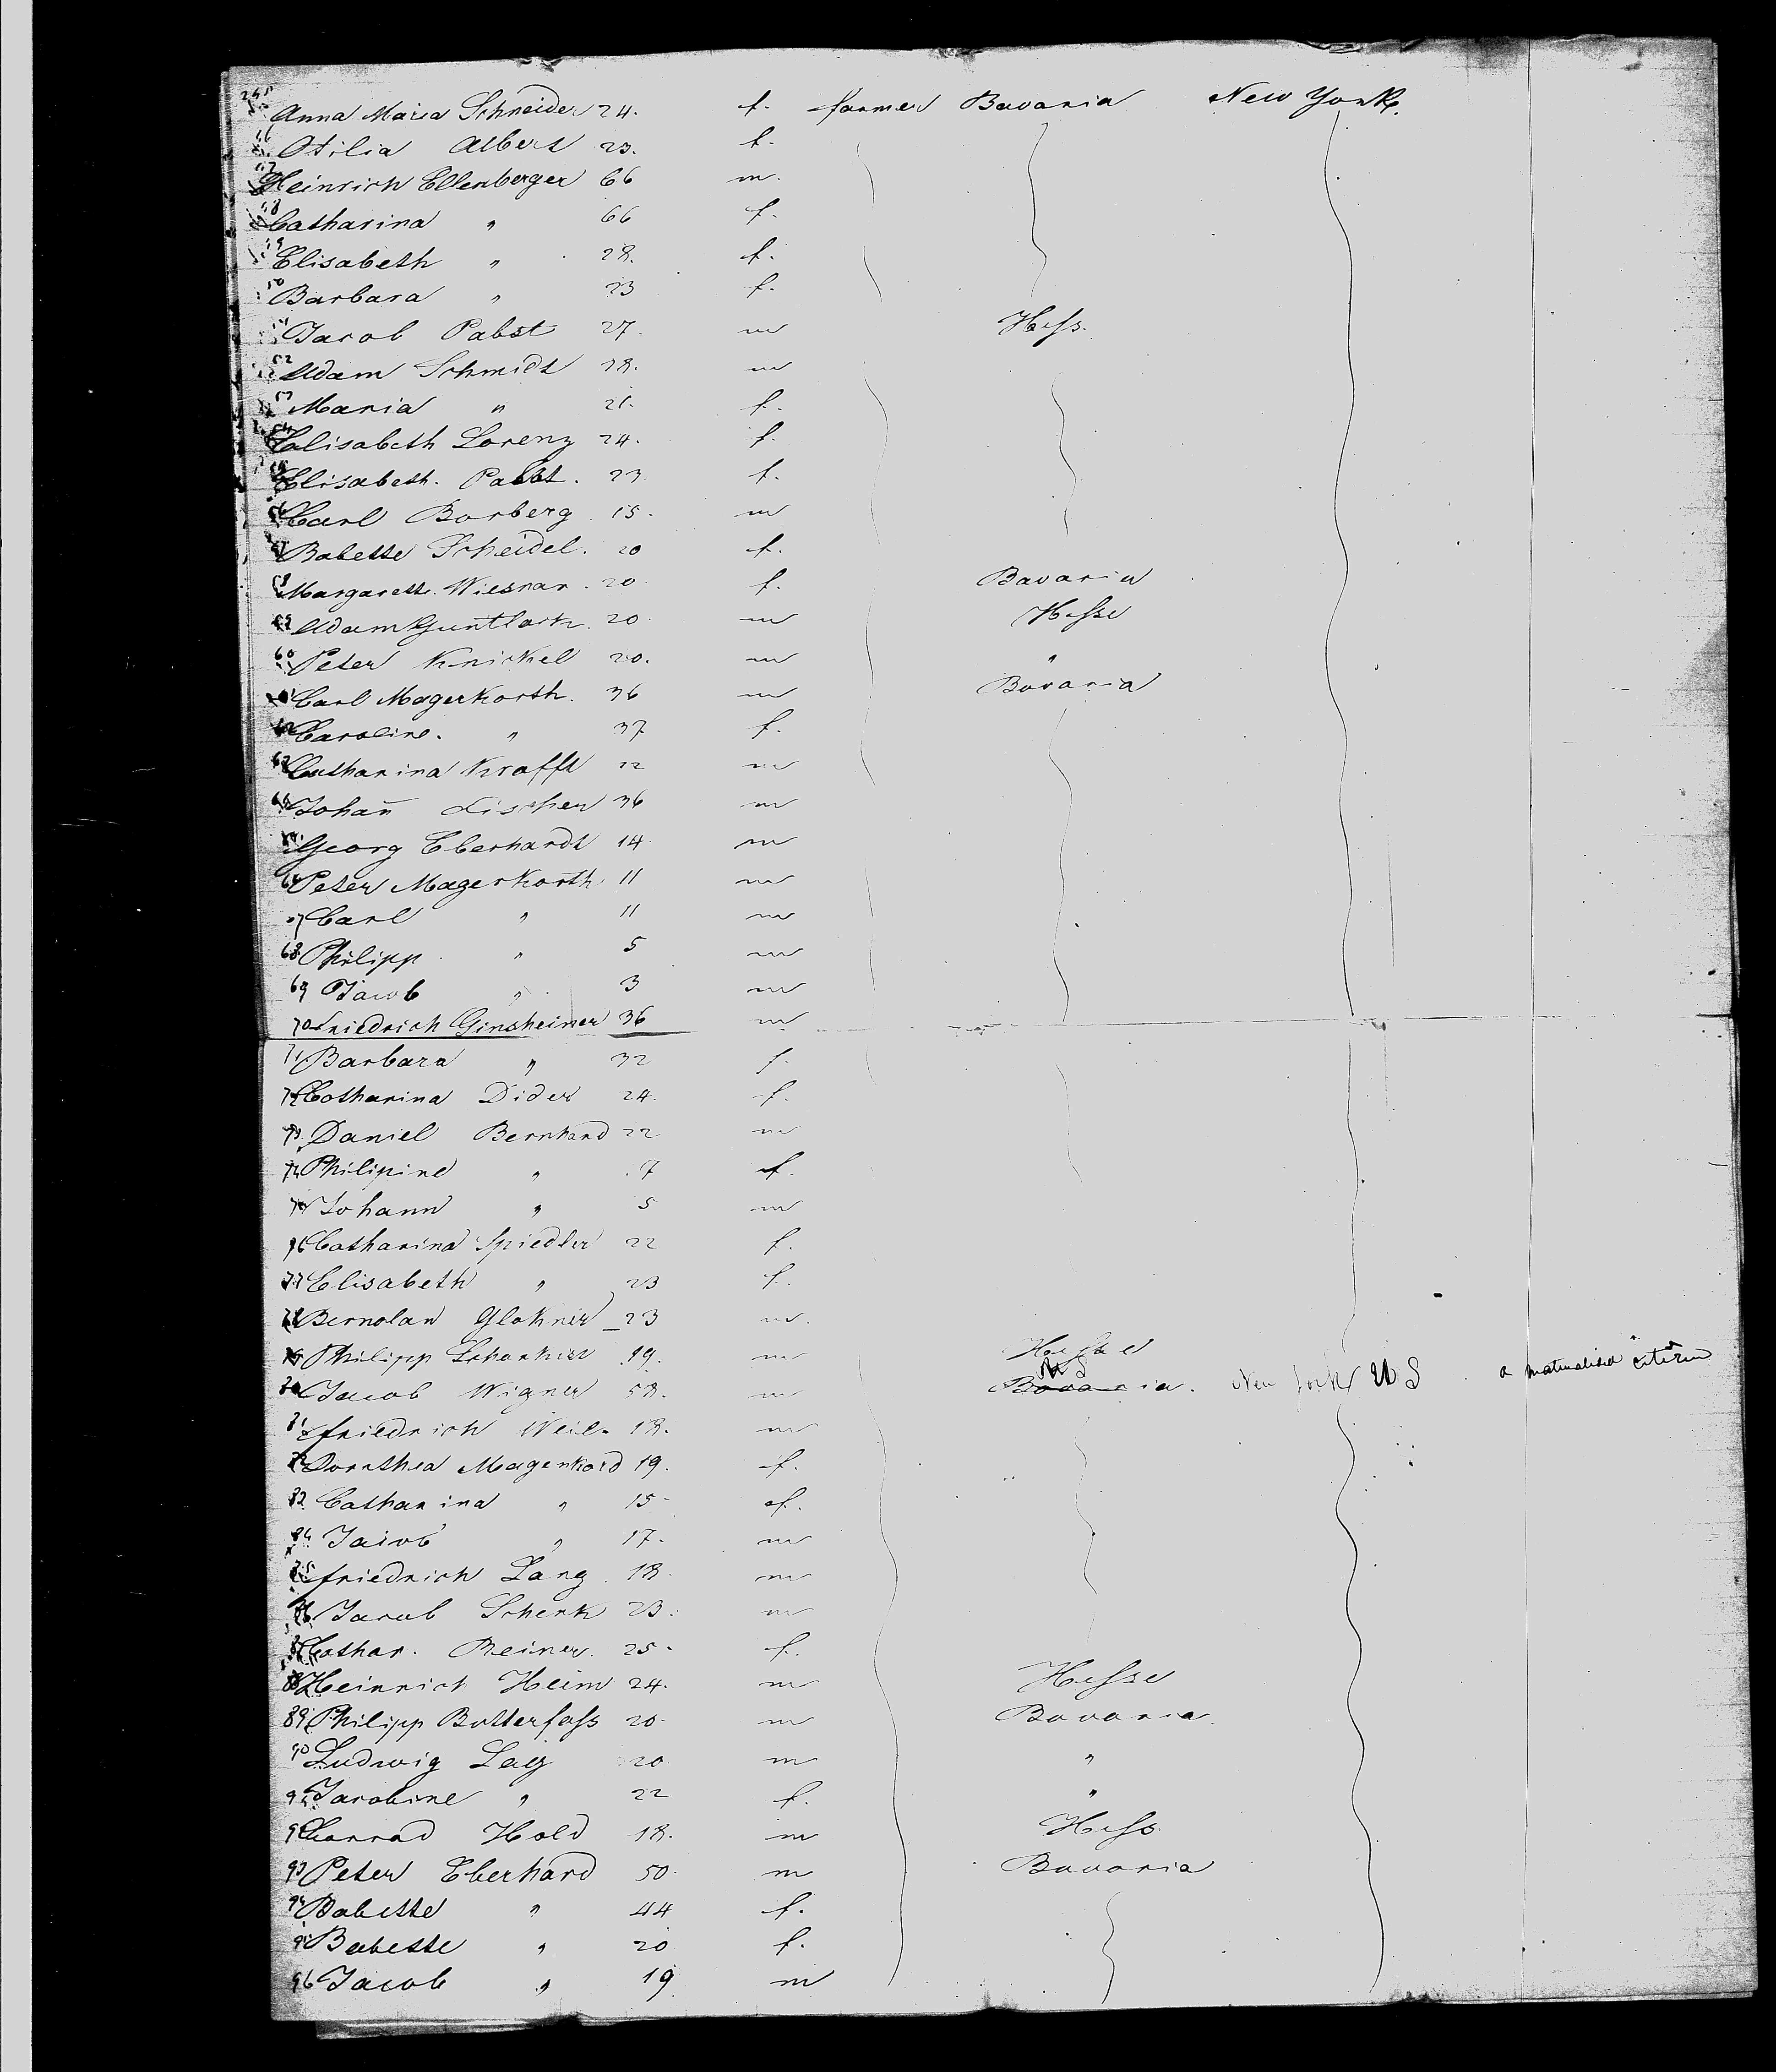 245 Anna Maria Schneider 24. f. farmer Bavaria New York.
46 Otilia Albert 23. f.
47 Heinrich Ellenberger 66 m.
48 Catharina " 66 f.
49 Elisabeth " 28. f.
50 Barbara " 23 f.
51 Jacob Pabst 27. m Hess.
52 Adam Schmidt 28. m
53 Maria " 21. f.
54 Elisabeth Lorenz 24. f.
55 Elisabeth. Pabst. 23. f.
56 Carl Borberg 15. m
57 Babette Scheidel. 20 f.
58 Margareth. Wiesnar. 20. f. Bavaria
59 Adam Guntlach. 20. m Hesse
60 Peter Knickel 20. m "
61 Carl Magerkorth. 36 m Bavaria
62 Caroline. " 37 f.
63 Catharina Krafft 22 m
64 Johan̄ Lischer 36 m
65 Georg Eberhardt 14 m
66 Peter Magerkorth 11 m
67 Carl " 11 m
68 Philipp " 5 m
69 Jacob " 3 m
70 Friedrich Ginsheimer 36 m
71 Barbara " 32 f.
72 Catharina Dider 24. f.
73 Daniel Bernhard 22 m
74 Philipine " 7 f.
75 Johann " 5 m
76 Catharina Spiedler 22 f.
77 Elisabeth " 23 f.
78 Glokner 23 m.
79 Philipp 19. m Hesse
80 Jacob Wigner 58. m Bavaria. U S New York U S a naturalised citizen
81 Friedrich Weil. 18. m
82 Dorothea Magerkord 19. f.
83 Catharina " 15 f.
84 Jacob " 17. m
85 Friedrich Lang 18 m
86 Jacob Schenk 23. m
87 Cathar. Reiner. 25. f.
88 Heinrich Heim 24. m Hesse
89 Philipp Butterfass 20. m Bavaria.
90 Ludwig Lay 20. m "
91 Jacobine " 22 f. "
92 Conrad Hold 18. m Hess
93 Peter Eberhard 50. m Bavaria
94 Babette " 44 f.
95 Babette " 20 f.
96 Jacob " 19 m